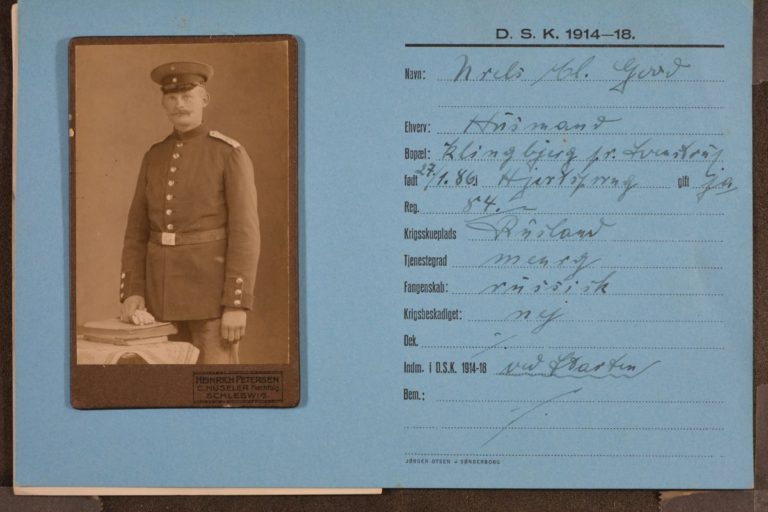 HEINRICH PETERSEN
C. HÜSELER Nachflg.
SCHLESWIG.
D. S. K. 1914—18.
Navn: Niels Cl. Good
Ehverv: Husmand
Bopæl: Klingbjerg pr.
født 27/1. 86 i Hjertsprung gift ja
Reg. 84.
Krigsskueplads Rusland
Tjenestegrad menig
Fangenskab: russisk
Krigsbeskadiget: nej
Dek.
Indm. i D.S.K. 1914-18 ved Starten
Bem.:
JØRGEN OTSEN - SØNDERBORG